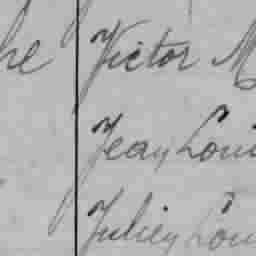 he Victor M
Jean Loui
Julien Lou